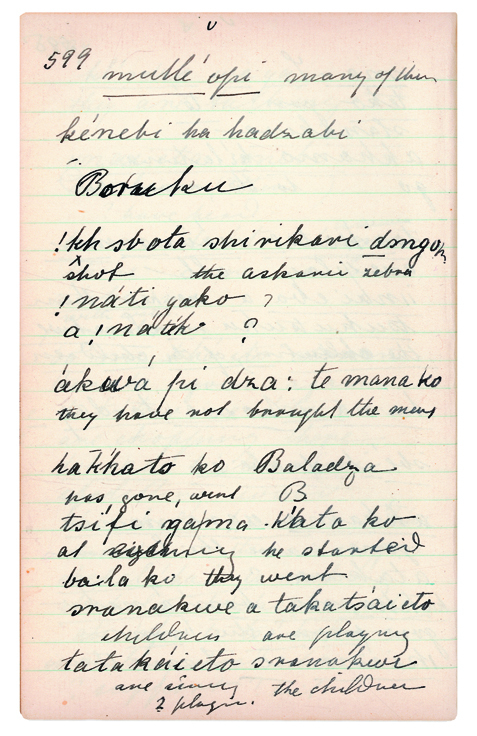 599 mullé opi many of them
kénebi ha hadzabi
Boraeku
!kh sbota shirikari dongoh
shot the askari zebra
!náti yako ?
a!náték ?
ákwá pi dza: te manako
they have not brought the meat
hakhato ko Baladza
has gone, went B
tsifi yama kato ko
at he started
baːla ko they went
sranakwe a takatsáieto
children are playing
tatakáieto sranakwe
are the children
? playn.